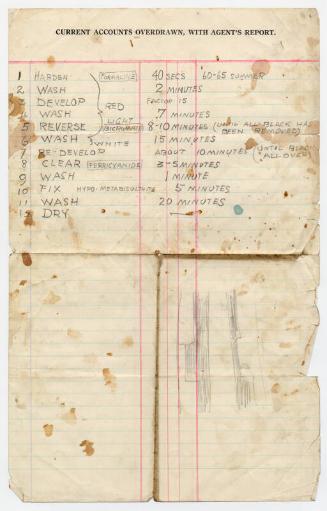 CURRENT ACCOUNTS OVERDRAWN, WITH AGENT'S REPORT.
1 HARDEN (FORMALINE) 40 SECS 60-65 SUMMER
2. WASH 2 MINUTES
3 DEVELOP RED FACTOR 15
4 WASH LIGHT 7 MINUTES
5 REVERSE (BICHROMATE) 8-10 MINUTES (UNTIL ALL BLACK HAS BEEN REMOVED)
6 WASH WHITE 15 MINUTES
7 RE-DEVELOP ABOUT 10 MINUTES (UNTIL BLACK ALL OVER)
8 CLEAR (FERRICYANIDE) 3-5 MINUTES
9 WASH 1 MINUTE
10 FIX HYPO-METABISULPHITE 5 MINUTES
11 WASH 20 MINUTES
12 DRY